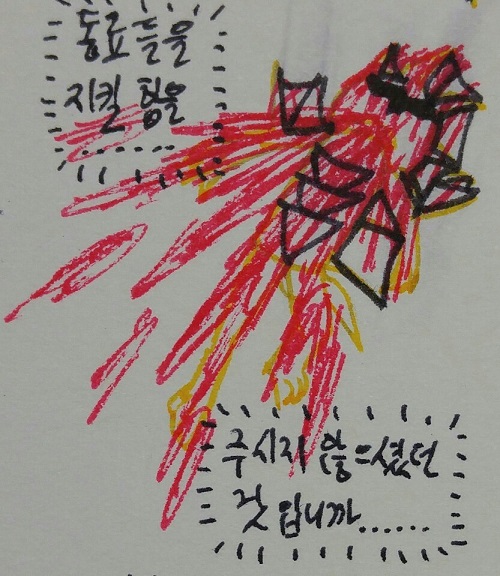 동료들을
지킬 힘을
......
주시지 않으셨던
것입니까......